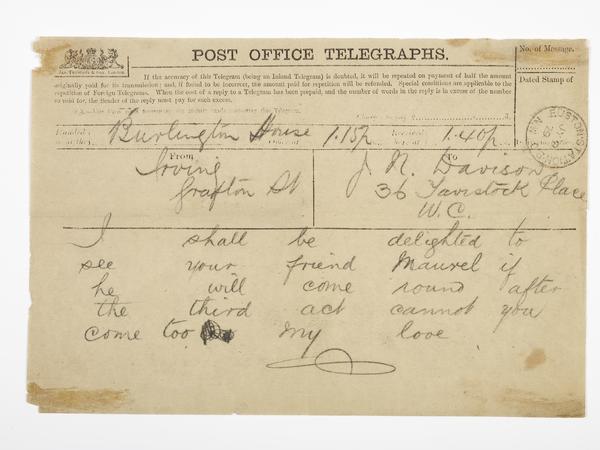 POST OFFICE TELEGRAPHS.
No. of Message.
If the accuracy of this Telegram (being an Inland Telegram) is doubted, it will be repeated on payment of half the amount
originally paid for its transmission; and, if found to be incorrect, the amount paid for repetition will be refunded. Special conditions are applicable to the
repetition of Foreign Telegrams. When the cost of a reply to a Telegram has been prepaid, and the number of words in the reply is in excess of the number
so paid for, the Sender of the reply must pay for such excess.
Dated Stamp of
Burlington House 1.15p 1.40p
EUSTON STATION
From
Irving
Grafton St
To
J. N. Davison
36 Tavistock Place
W.C.
I shall be delighted to
see your friend Maurel if
he will come round after
the third act cannot you
come too my love